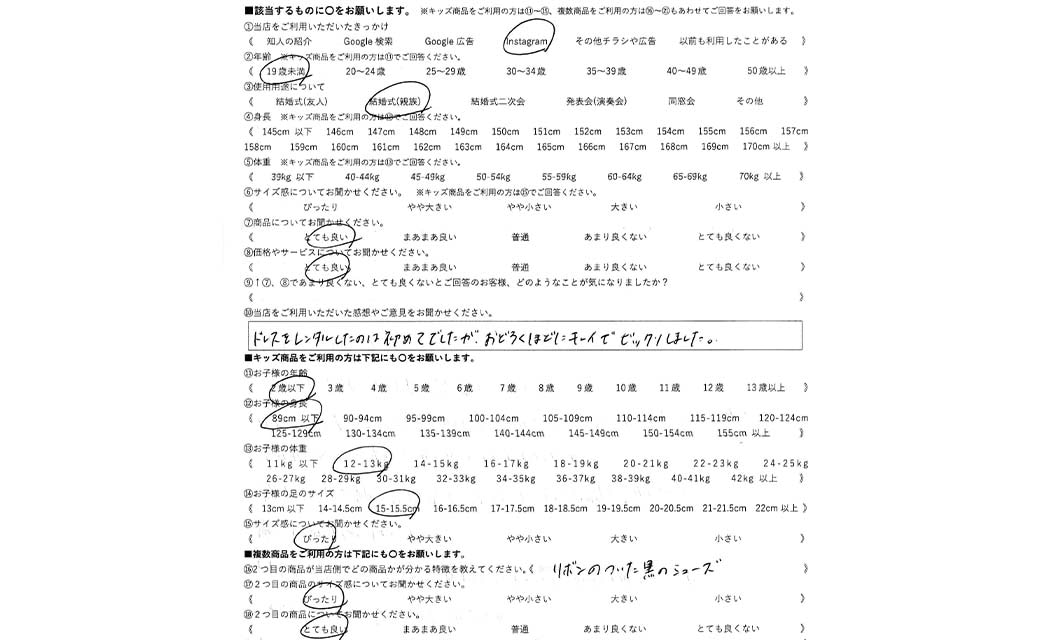 ■該当するものに〇をお願いします。 ※キッズ商品をご利用の方は⑪～⑮、複数商品をご利用の方は⑯～㉑もあわせてご回答をお願いします。
①当店をご利用いただいたきっかけ
《 知人の紹介 Google 検索 Google 広告 Instagram その他チラシや広告 以前も利用したことがある 》
②年齢 ※キッズ商品をご利用の方は⑪でご回答ください。
《 19歳未満 20～24歳 25～29歳 30～34歳 35～39歳 40～49歳 50歳以上 》
③使用用途について
《 結婚式(友人) 結婚式(親族) 結婚式二次会 発表会(演奏会) 同窓会 その他 》
④身長 ※キッズ商品をご利用の方は⑫でご回答ください。
《 145cm 以下 146cm 147cm 148cm 149cm 150cm 151cm 152cm 153cm 154cm 155cm 156cm 157cm
158cm 159cm 160cm 161cm 162cm 163cm 164cm 165cm 166cm 167cm 168cm 169cm 170cm 以上 》
⑤体重 ※キッズ商品をご利用の方は⑬でご回答ください。
《 39kg 以下 40-44kg 45-49kg 50-54kg 55-59kg 60-64kg 65-69kg 70kg 以上 》
⑥サイズ感についてお聞かせください。 ※キッズ商品をご利用の方は⑮でご回答ください。
《 ぴったり やや大きい やや小さい 大きい 小さい 》
⑦商品についてお聞かせください。
《 とても良い まあまあ良い 普通 あまり良くない とても良くない 》
⑧価格やサービスについてお聞かせください。
《 とても良い まあまあ良い 普通 あまり良くない とても良くない 》
⑨！⑦、⑧であまり良くない、とても良くないとご回答のお客様、どのようなことが気になりましたか？
《 》
⑩当店をご利用いただいた感想やご意見をお聞かせください。
ドレスをレンタルしたのは初めてでしたが、おどろくほどにキレイでビックリしました。
■キッズ商品をご利用の方は下記にも〇をお願いします。
⑪お子様の年齢
《 2歳以下 3歳 4歳 5歳 6歳 7歳 8歳 9歳 10歳 11歳 12歳 13歳以上 》
⑫お子様の身長
《 89cm 以下 90-94cm 95-99cm 100-104cm 105-109cm 110-114cm 115-119cm 120-124cm
125-129cm 130-134cm 135-139cm 140-144cm 145-149cm 150-154cm 155cm 以上 》
⑬お子様の体重
《 11kg 以下 12-13kg 14-15kg 16-17kg 18-19kg 20-21kg 22-23kg 24-25kg
26-27kg 28-29kg 30-31kg 32-33kg 34-35kg 36-37kg 38-39kg 40-41kg 42kg 以上 》
⑭お子様の足のサイズ
《 13cm以下 14-14.5cm 15-15.5cm 16-16.5cm 17-17.5cm 18-18.5cm 19-19.5cm 20-20.5cm 21-21.5cm 22cm 以上 》
⑮サイズ感についてお聞かせください。
《 ぴったり やや大きい やや小さい 大きい 小さい 》
■複数商品をご利用の方は下記にも〇をお願いします。
⑯2つ目の商品が当店側でどの商品かが分かる特徴を教えてください。《 リボンのついた黒のシューズ 》
⑰2つ目の商品のサイズ感についてお聞かせください。
《 ぴったり やや大きい やや小さい 大きい 小さい 》
⑱2つ目の商品についてお聞かせください。
《 とても良い まあまあ良い 普通 あまり良くない とても良くない 》